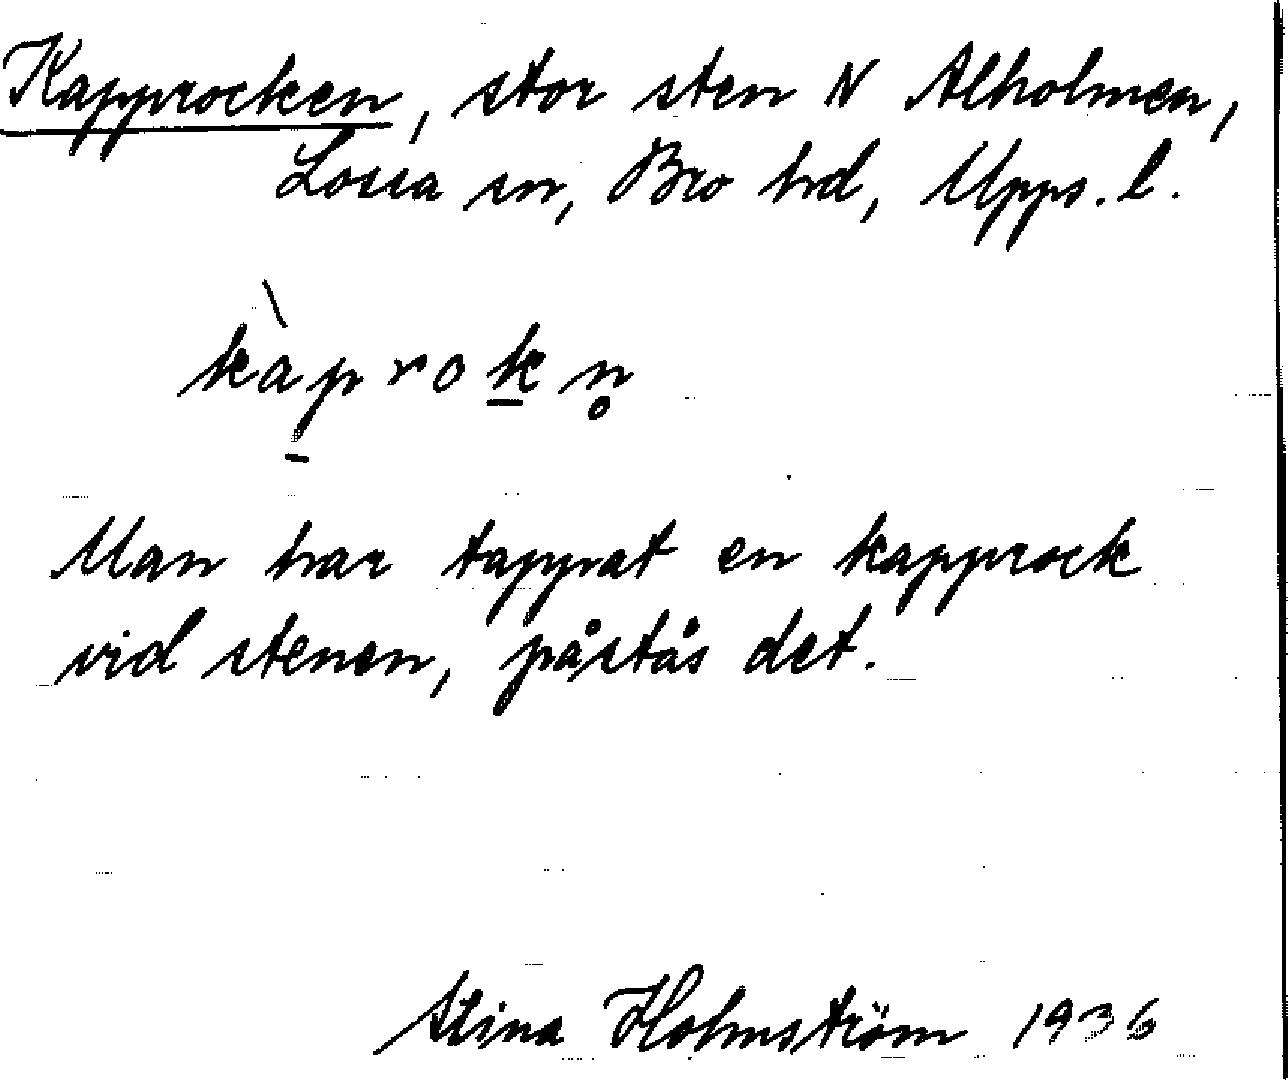 Kapprocken, stor sten N Alholmen,
Lossa sn, Bro hd, Upps. l.
kàp̠rok̠n̥
Man har tappat en kapprock
vid stenen, påstås det.
Stina Holmström 1936